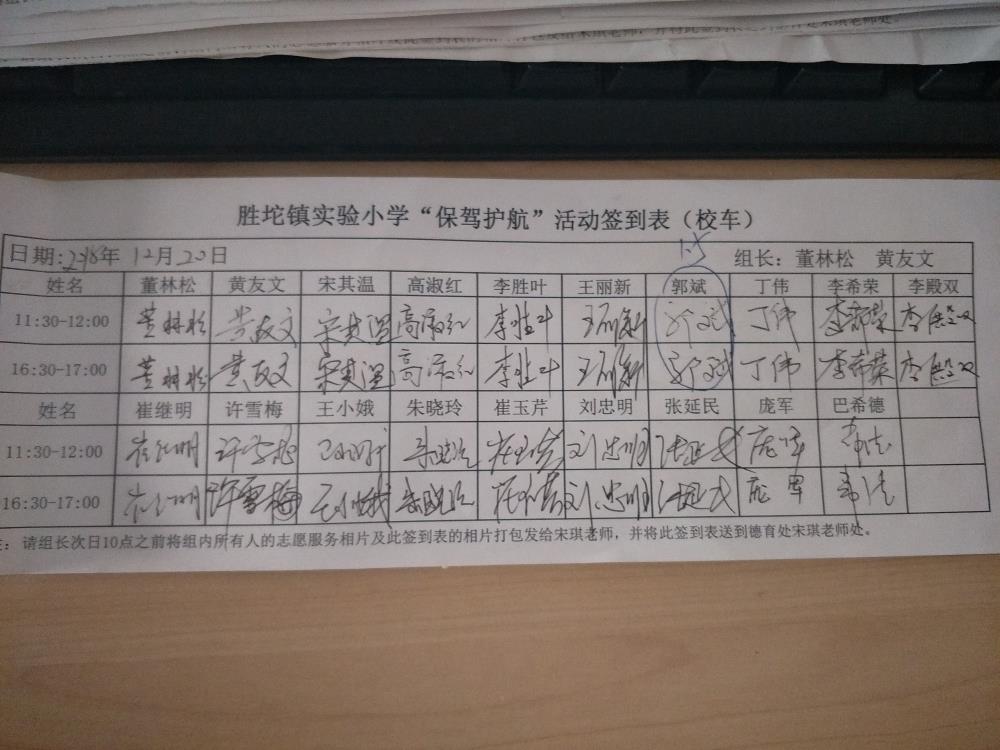 胜坨镇实验小学“保驾护航”活动签到表（校车）
日期:2018年 12月20日 组长：董林松 黄友文
姓名 董林松 黄友文 宋其温 高淑红 李胜叶 王丽新 郭斌 丁伟 李希荣 李殿双
11:30-12:00 董林松 黄友文 宋其温 高淑红 李胜叶 王丽新 郭斌 丁伟 李希荣 李殿双
16:30-17:00 董林松 黄友文 宋其温 高淑红 李胜叶 王丽新 郭斌 丁伟 李希荣 李殿双
姓名 崔继明 许雪梅 王小娥 朱晓玲 崔玉芹 刘忠明 张延民 庞军 巴希德
11:30-12:00 崔继明 许雪梅 王小娥 朱晓玲 崔玉芹 刘忠明 张延民 庞军
16:30-17:00 崔继明 许雪梅 王小娥 朱晓玲 崔玉芹 刘忠明 张延民 庞军
：请组长次日10点之前将组内所有人的志愿服务相片及此签到表的相片打包发给宋琪老师，并将此签到表送到德育处宋琪老师处。